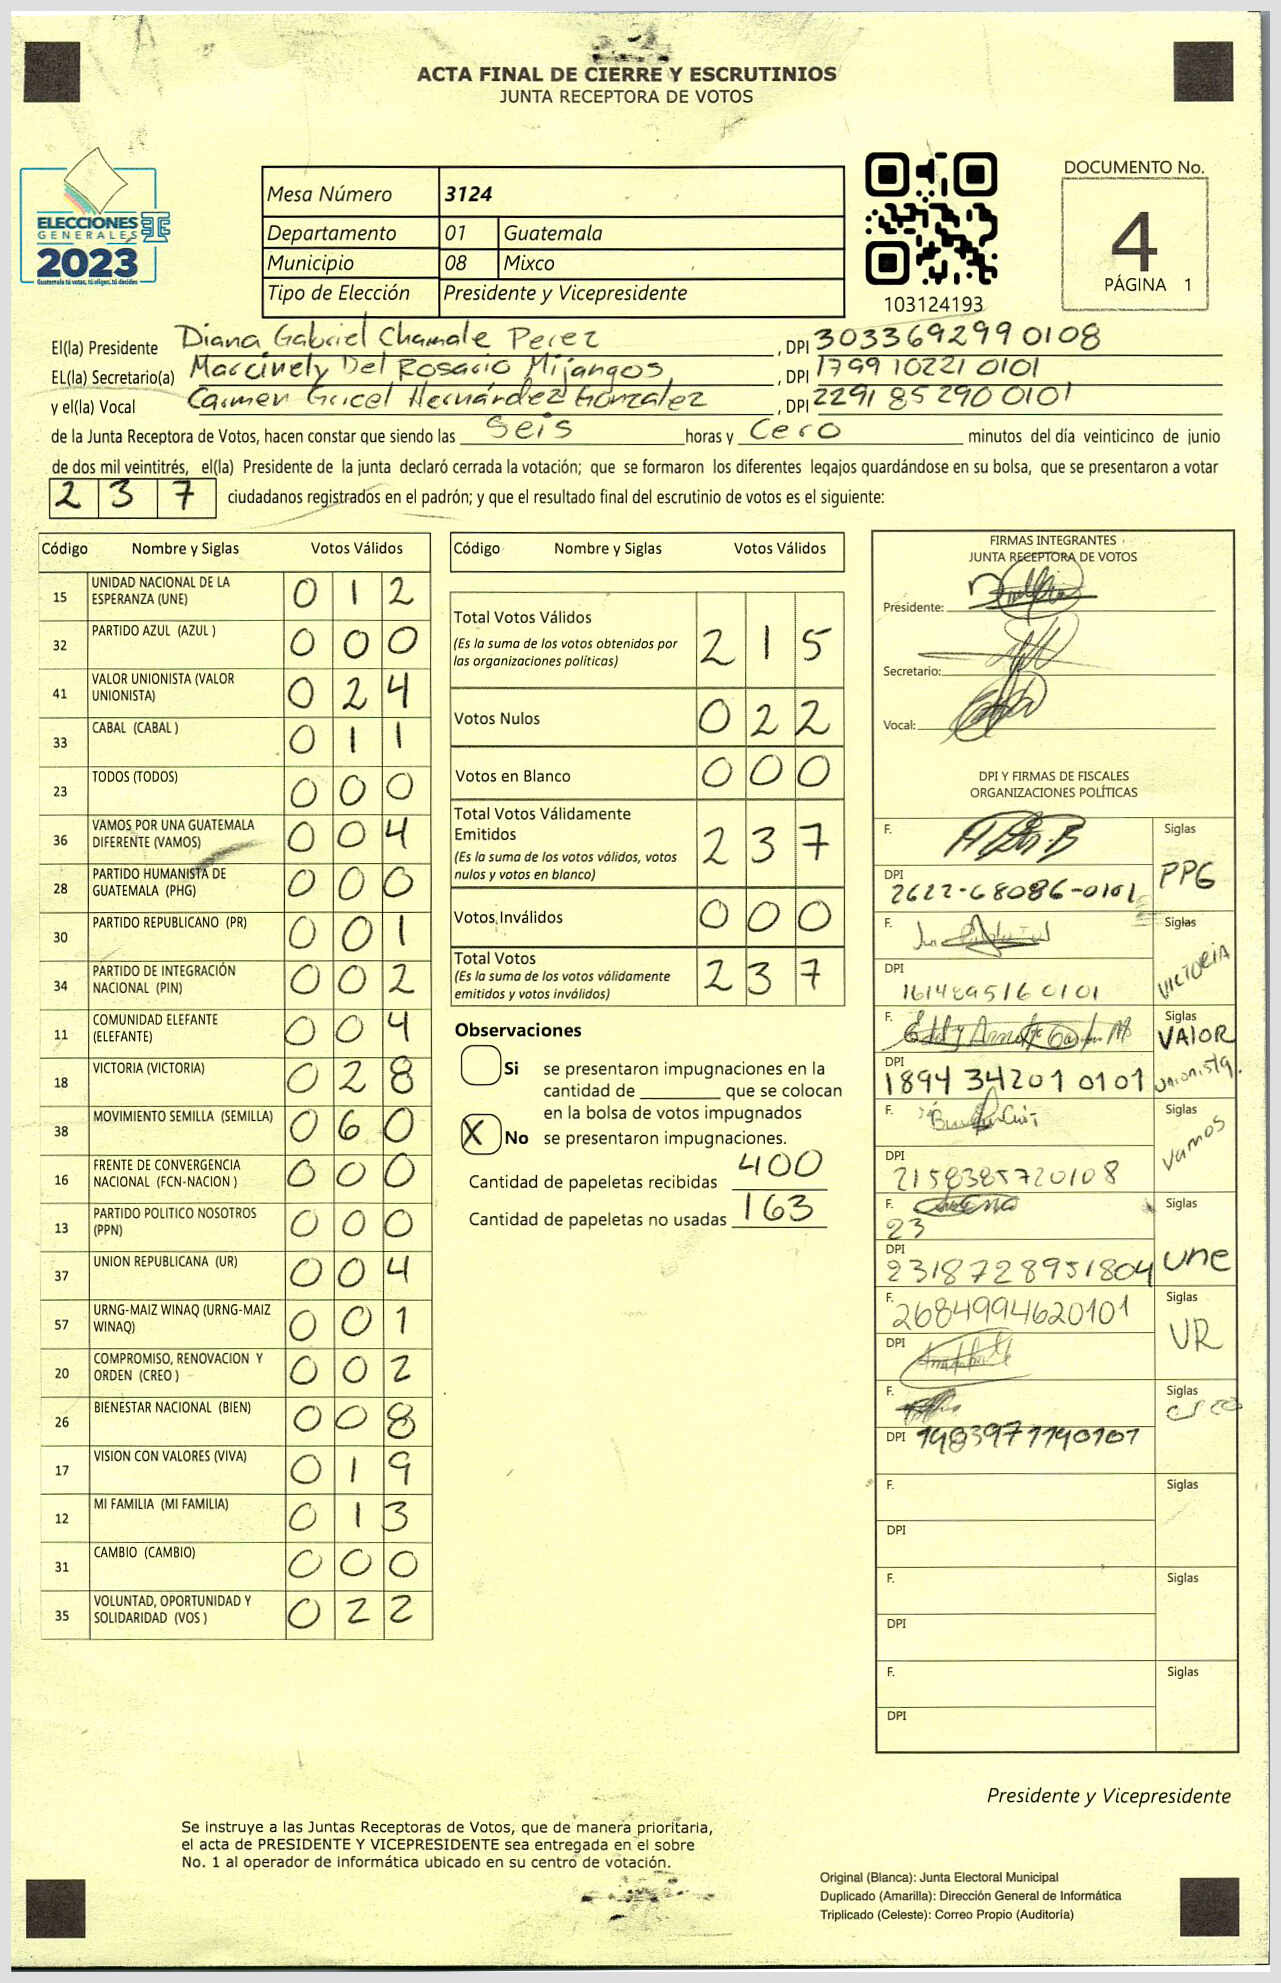 ACTA FINAL DE CIERRE Y ESCRUTINIOS
JUNTA RECEPTORA DE VOTOS
ELECCIONES
GENERALES
2023
Guatemala tú votas, tú eliges, tú decides
Mesa Número 3124
Departamento 01 Guatemala
Municipio 08 Mixco
Tipo de Elección Presidente y Vicepresidente
103124193
DOCUMENTO No.
4
PÁGINA 1
El(la) Presidente Diana Gabriel Chamale Perez , DPI 3033692990108
EL(la) Secretario(a) Marcinely Del Rosario Mijangos , DPI 1799 10221 0101
y el(la) Vocal Carmen Gricel Hernández Gonzalez , DPI 2291 85290 0101
de la Junta Receptora de Votos, hacen constar que siendo las Seis horas y Cero minutos del día veinticinco de junio
de dos mil veintitrés, el(la) Presidente de la junta declaró cerrada la votación; que se formaron los diferentes legajos guardándose en su bolsa, que se presentaron a votar
2 3 7 ciudadanos registrados en el padrón; y que el resultado final del escrutinio de votos es el siguiente:
Código Nombre y Siglas Votos Válidos
15 UNIDAD NACIONAL DE LA ESPERANZA (UNE) 0 1 2
32 PARTIDO AZUL (AZUL ) 0 0 0
41 VALOR UNIONISTA (VALOR UNIONISTA) 0 2 4
33 CABAL (CABAL ) 0 1 1
23 TODOS (TODOS) 0 0 0
36 VAMOS POR UNA GUATEMALA DIFERENTE (VAMOS) 0 0 4
28 PARTIDO HUMANISTA DE GUATEMALA (PHG) 0 0 0
30 PARTIDO REPUBLICANO (PR) 0 0 1
34 PARTIDO DE INTEGRACIÓN NACIONAL (PIN) 0 0 2
11 COMUNIDAD ELEFANTE (ELEFANTE) 0 0 4
18 VICTORIA (VICTORIA) 0 2 8
38 MOVIMIENTO SEMILLA (SEMILLA) 0 6 0
16 FRENTE DE CONVERGENCIA NACIONAL (FCN-NACION ) 0 0 0
13 PARTIDO POLITICO NOSOTROS (PPN) 0 0 0
37 UNION REPUBLICANA (UR) 0 0 4
57 URNG-MAIZ WINAQ (URNG-MAIZ WINAQ) 0 0 1
20 COMPROMISO, RENOVACION Y ORDEN (CREO ) 0 0 2
26 BIENESTAR NACIONAL (BIEN) 0 0 8
17 VISION CON VALORES (VIVA) 0 1 9
12 MI FAMILIA (MI FAMILIA) 0 1 3
31 CAMBIO (CAMBIO) 0 0 0
35 VOLUNTAD, OPORTUNIDAD Y SOLIDARIDAD (VOS ) 0 2 2
Código Nombre y Siglas Votos Válidos
Total Votos Válidos 2 1 5
(Es la suma de los votos obtenidos por
las organizaciones políticas)
Votos Nulos 0 2 2
Votos en Blanco 0 0 0
Total Votos Válidamente
Emitidos 2 3 7
(Es la suma de los votos válidos, votos
nulos y votos en blanco)
Votos Inválidos 0 0 0
Total Votos 2 3 7
(Es la suma de los votos válidamente
emitidos y votos inválidos)
Observaciones
Si se presentaron impugnaciones en la
cantidad de ________ que se colocan
en la bolsa de votos impugnados
X No se presentaron impugnaciones.
Cantidad de papeletas recibidas 400
Cantidad de papeletas no usadas 163
FIRMAS INTEGRANTES
JUNTA RECEPTORA DE VOTOS
Presidente:
Secretario:
Vocal:
DPI Y FIRMAS DE FISCALES
ORGANIZACIONES POLÍTICAS
F. Siglas PPG
DPI 2622-68086-0101
F. Siglas VICTORIA
DPI 1614895160101
F. Siglas VALOR Unionista.
DPI 1894 34201 0101
F. Siglas Vamos
DPI 2158385720108
F. 23 Siglas une
DPI 2318728951804
F. 2684994620101 Siglas UR
DPI
F. Siglas creo
DPI 1983971190101
F. Siglas
DPI
F. Siglas
DPI
F. Siglas
DPI
Presidente y Vicepresidente
Se instruye a las Juntas Receptoras de Votos, que de manera prioritaria,
el acta de PRESIDENTE Y VICEPRESIDENTE sea entregada en el sobre
No. 1 al operador de informática ubicado en su centro de votación.
Original (Blanca): Junta Electoral Municipal
Duplicado (Amarilla): Dirección General de Informática
Triplicado (Celeste): Correo Propio (Auditoría)